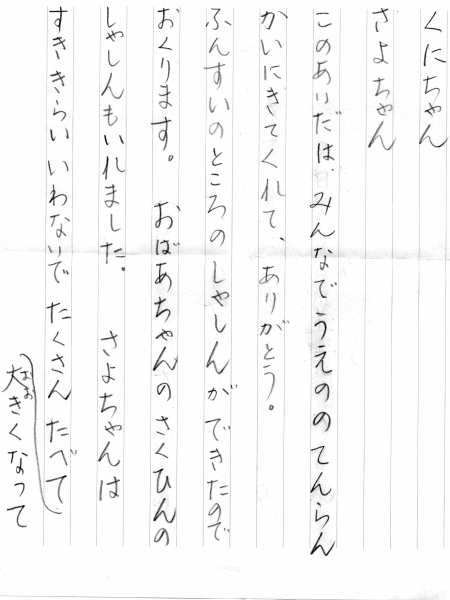 くにちゃん
さよちゃん
このあいだは、みんなでうえののてんらん
かいにきてくれて、ありがとう。
ふんすいのところのしゃしんができたので
おくります。 おばあちゃんのさくひんの
しゃしんもいれました。 さよちゃんは
すききらいいわないでたくさんたべて
大きくなって
おお